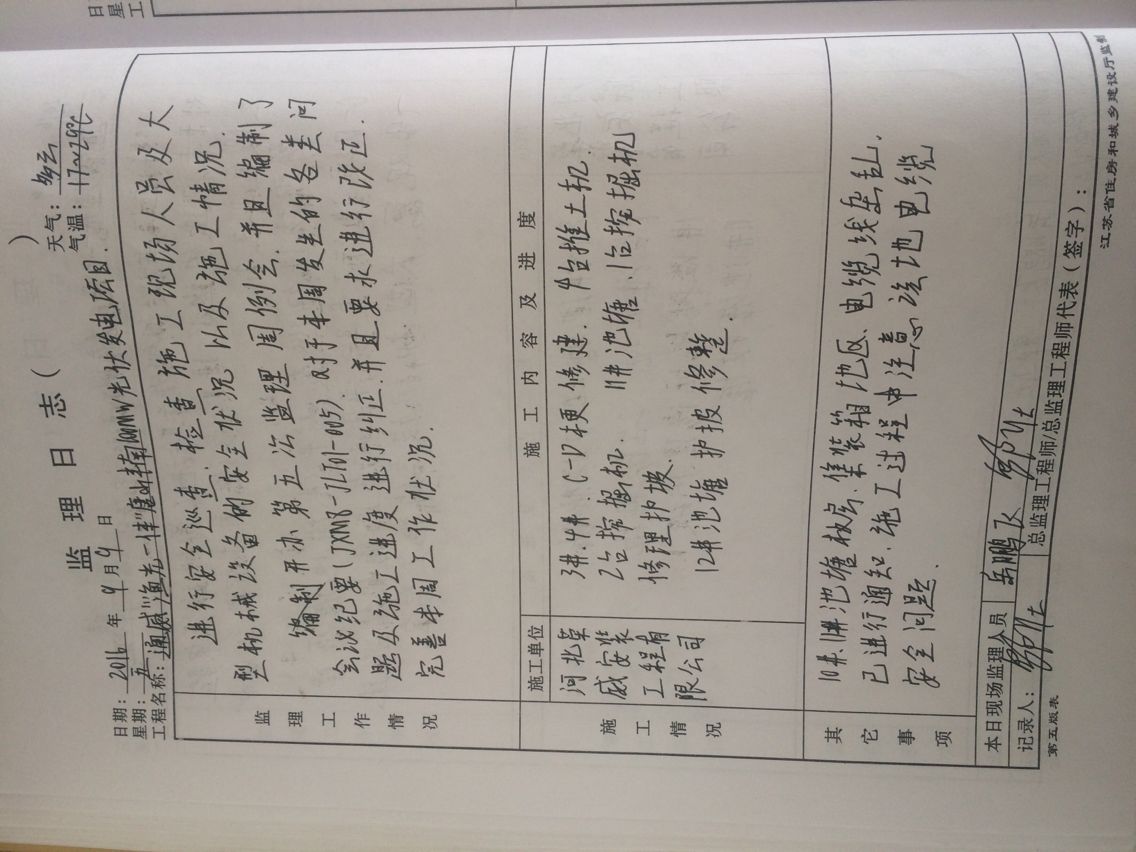 监理日志（ ）
日期：2016年9月9日 天气：多云
星期：五 气温：17~29℃
工程名称：通威"渔光一体"唐山丰南100MW光伏发电项目.
监理工作情况
进行安全巡查.检查施工现场人员及大
型机械设备的安全状况以及施工情况.
编制开办第五次监理周例会.并且编制了
会议纪要(JXMB-JL101-005).对于本周发生的各类问
题及施工进度进行纠正.并且要求进行改正.
完善本周工作状况.
施工单位 施工内容及进度
施工情况
河北荣
威安装
工程有
限公司
3#.4# C-D埂修建. 4台推土机.
2台挖掘机. 11#池塘 1台挖掘机
修理护坡.
12#池塘 护坡修整.
其它事项
10#.11#池塘板房.集装箱地区.电缆线杂乱.
已进行通知.施工过程中注意该地电缆
安全问题.
本日现场监理人员 岳鹏飞
记录人： 总监理工程师/总监理工程师代表（签字）：
第五版表 江苏省住房和城乡建设厅监制